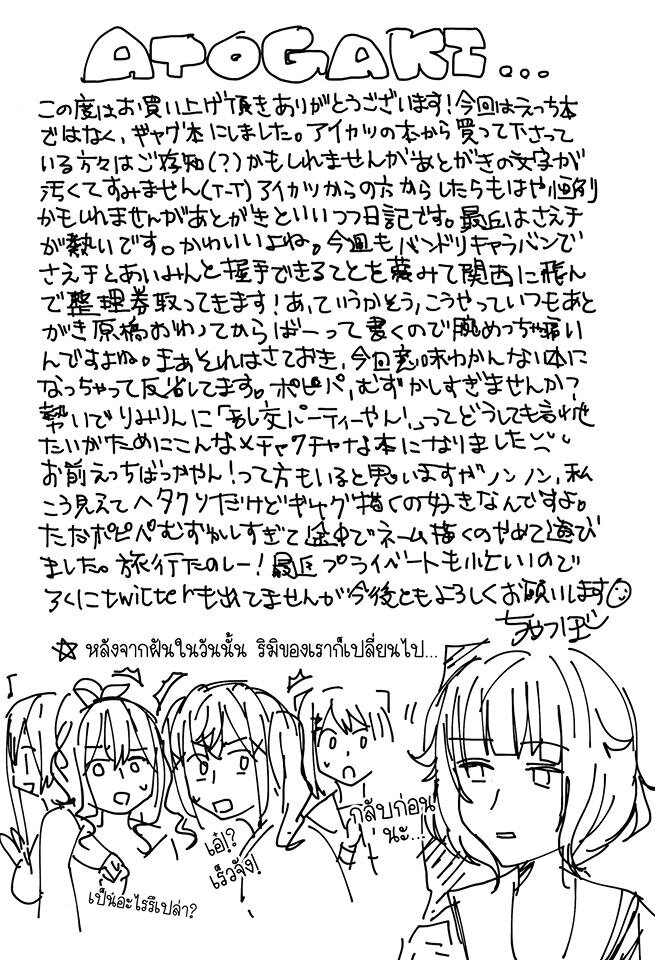 ATOGAKI...
この度はお買い上げ頂きありがとうございます!今回はえっち本
ではなく、ギャグ本にしました。アイカツの本から買って下さって
いる方々はご存知(?)かもしれませんがあとがきの文字が
汚くてすみません(T-T)アイカツからの方からしたらもはや恒例
かもしれませんがあとがきといいつつ日記です。最近はさえチ
が熱いです。かわいいよね。今週もバンドリキャラバンで
さえチとあいみんと握手できることを夢みて関西に飛ん
で整理券取ってきます!あ、ていうかそう、こうやっていつもあと
がき原稿おわってからばーって書くので腕めっちゃ痛い
んですよね。まぁそれはさておき、今回意味わかんない本に
なっちゃって反省してます。ポピパ、むずかしすぎませんか?
勢いでりみりんに「乱交パーティーやん!」ってどうしても言わせ
たいがためにこんなメチャクチャな本になりました
お前えっちばっかやん!って方もいると思いますがノンノン、私
こう見えてヘタクソだけどギャグ描くの好きなんですよ。
ただポピパむずかしすぎて途中でネーム描くのやめて遊び
ました。旅行たのしー!最近プライベートも忙しいので
ろくにtwitterも出てませんが今後ともよろしくお願いします
ちゃつぼ
☆ หลังจากฝันในวันนั้น ริมิของเราก็เปลี่ยนไป...
กลับก่อน
นะ...
เอ๋!?
เร็วจัง!
เป็นอะไรรึเปล่า?